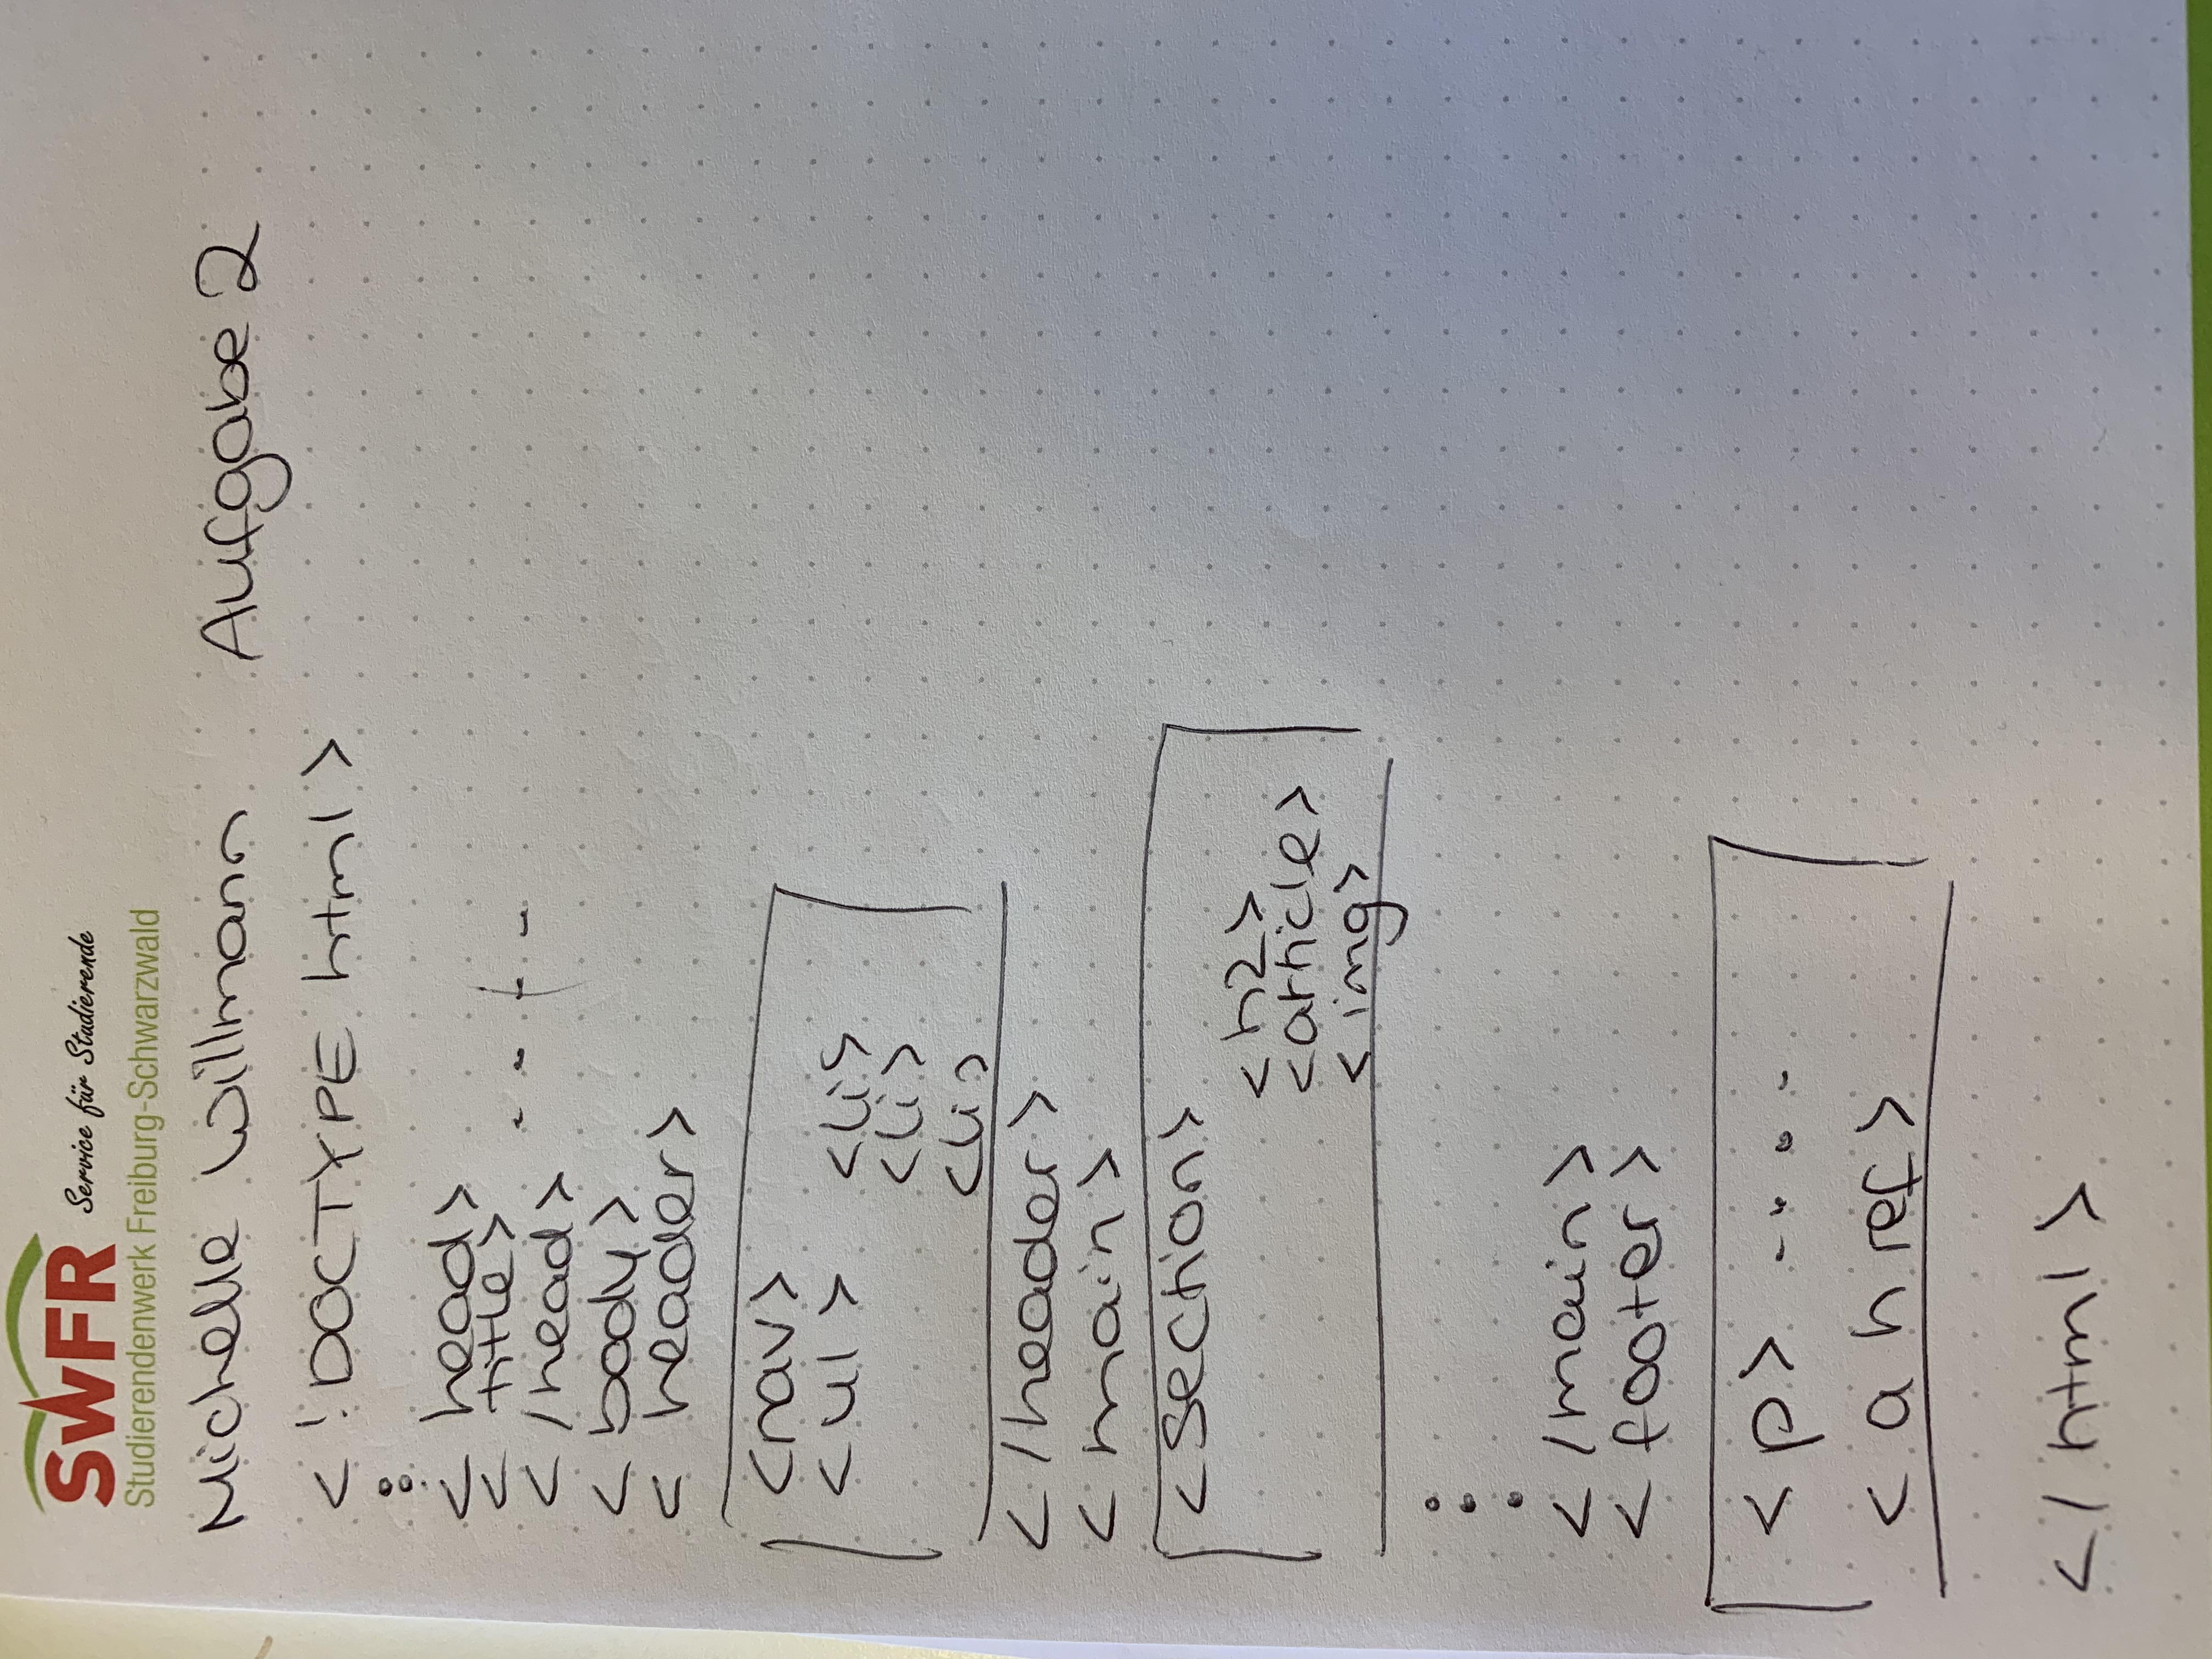 SWFR Service für Studierende
Studierendenwerk Freiburg-Schwarzwald
Michelle Willmann Aufgabe 2
<!DOCTYPE html>
<head>
<title> ....
</head>
<body>
<header>
<nav>
<ul> <li>
<li>
<li>
</header>
<main>
<section>
<h2>
<article>
<img>
</main>
<footer>
<p> ....
<a href>
</html>